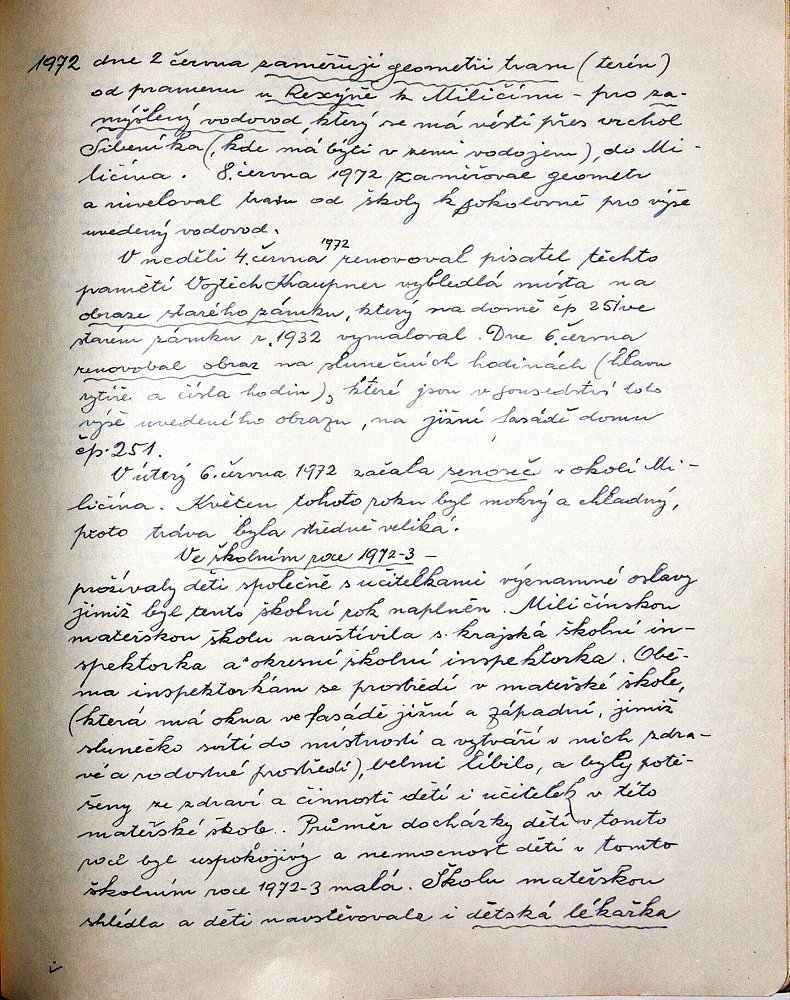 1972 dne 2 června zaměřují geometři trasu (terén)
od pramenu u Rexýně k Miličínu - pro za-
mýšlený vodovod, který se má vésti přes vrchol
Šibeníka (, kde má býti v zemi vodojem), do Mi-
ličína. 8. června 1972 zaměřoval geometr
a niveloval trasu od školy k sokolovně pro výše
uvedený vodovod.
V neděli 4. června 1972 renovoval pisatel těchto
pamětí Vojtěch Kaupner vybledlá místa na
obraze starého zámku, který na domě čp 251 ve
starém zámku r. 1932 vymaloval. Dne 6. června
renovoval obraz na slunečních hodinách (hlavu
rytíře a čísla hodin), které jsou v sousedství toho
výše uvedeného obrazu, na jižní fasádě domu
čp. 251.
V úterý 6. června 1972 začala senoseč v okolí Mi-
ličína. Květen tohoto roku byl mokrý a chladný,
proto tráva byla středně veliká.
Ve školním roce 1972-3 -
prožívaly děti společně s učitelkami významné oslavy
jimiž byl tento školní rok naplněn. Miličínskou
mateřskou školu navštívila s. krajská školní in-
spektorka a okresní školní inspektorka. Obě-
ma inspektorkám se prostředí v mateřské škole,
(která má okna ve fasádě jižní a západní, jimiž
slunéčko svítí do místností a vytváří v nich zdra-
vé a radostné prostředí), velmi líbilo, a byly potě-
šeny ze zdraví a činnosti dětí i učitelek v této
mateřské škole. Průměr docházky dětí v tomto
roce byl uspokojivý a nemocnost dětí v tomto
školním roce 1972-3 malá. Školu mateřskou
shlédla a děti navštěvovala i dětská lékařka